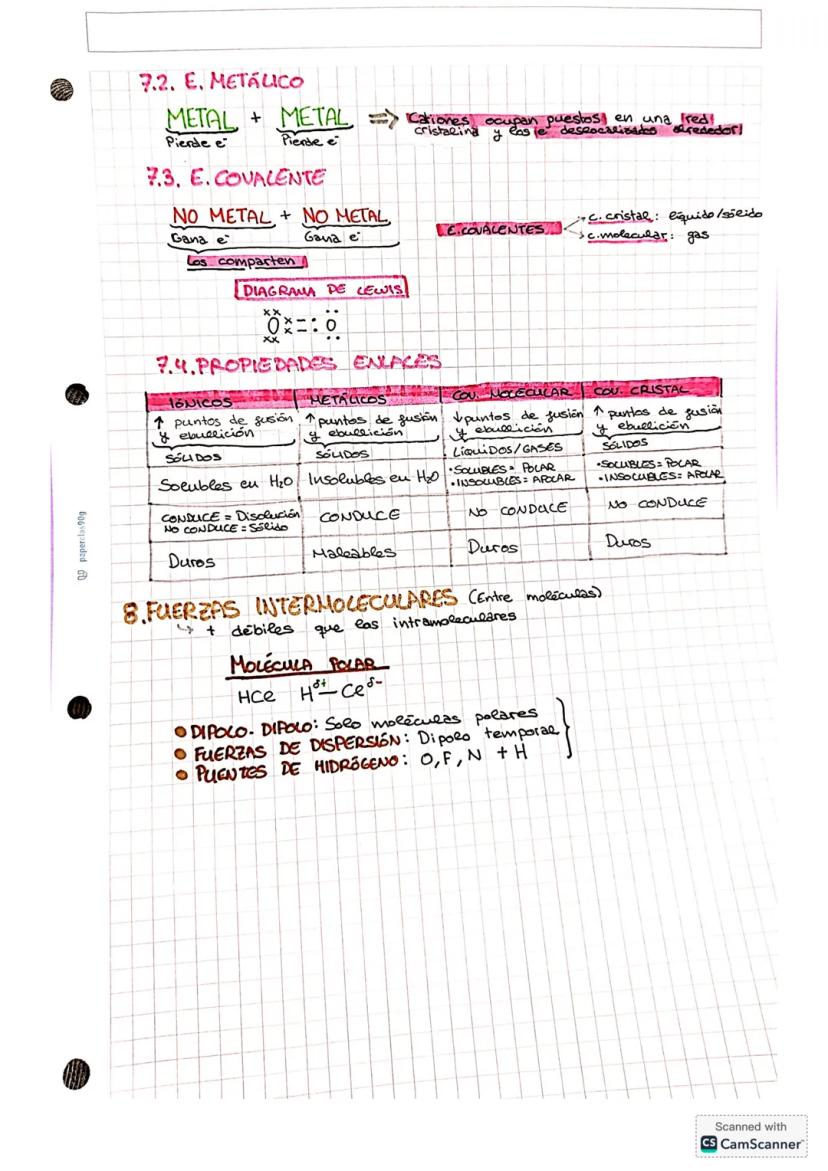 7.2. E. METÁLICO
METAL + METAL => Cationes ocupan puestos en una red
Pierde e⁻ Pierde e⁻ cristalina y los e⁻ deslocalizados alrededor
7.3. E. COVALENTE
NO METAL + NO METAL
Gana e⁻ Gana e⁻
Los comparten
E.COVALENTES
c. cristal: líquido/sólido
c.molecular: gas
DIAGRAMA DE LEWIS
xx
O x x = : O
xx
7.4. PROPIEDADES ENLACES
IÓNICOS METÁLICOS COV. MOLECULAR COV. CRISTAL
↑ puntos de fusión ↑ puntos de fusión ↓ puntos de fusión ↑ puntos de fusión
y ebullición y ebullición y ebullición y ebullición
SÓLIDOS SÓLIDOS LíquiDOS/GASES SÓLIDOS
Solubles en H₂O Insolubles en H₂O •SOLUBLES = POLAR •SOLUBLES = POLAR
•INSOLUBLES = APOLAR •INSOLUBLES = APOLAR
CONDUCE = Disolución CONDUCE NO CONDUCE NO CONDUCE
NO CONDUCE = Sólido
Duros Maleables Duros Duros
8. FUERZAS INTERMOLECULARES (Entre moléculas)
↳ + débiles que las intramoleculares
MOLÉCULA POLAR
HCl H^δ+ — Cl^δ-
• DIPOLO-DIPOLO: Solo moléculas polares
• FUERZAS DE DISPERSIÓN: Dipolo temporal
• PUENTES DE HIDRÓGENO: O, F, N + H
paperclas 90g
Scanned with
CS CamScanner